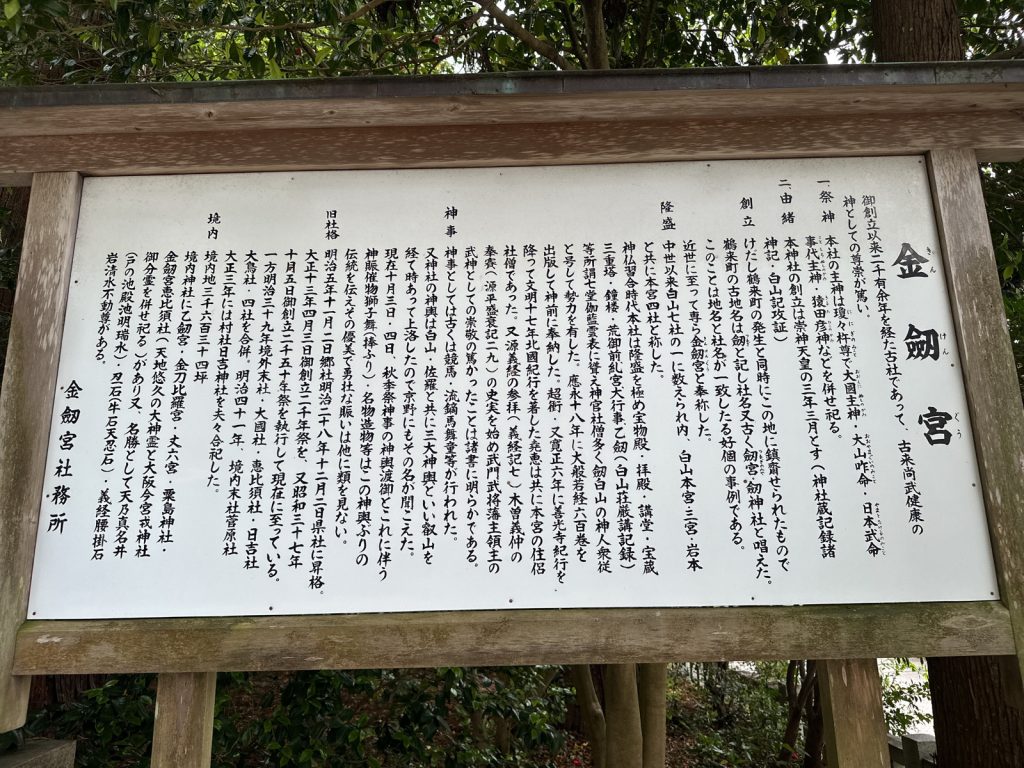 金劔宮
きん けん ぐう
御創立以来二千有余年を経た古社であって、古来尚武健康の
神としての尊崇が篤い。
一.祭神 本社の主神は瓊々杵尊で大國主神・大山咋命・日本武命
事代主神・猿田彦神などを併せ祀る。
二.由緒 本神社の創立は崇神天皇の三年三月とす(神社蔵記録諸
神記・白山記攻証)
創立 けだし鶴来町の発生と同時にこの地に鎮齋せられたもので
鶴来町の古地名は劔と記し社名又古く劔宮、劔神社と唱えた。
このことは地名と社名が一致したる好個の事例である。
近世に至って専ら金劔宮と奉称した。
隆盛 中世以来白山七社の一に数えられ内、白山本宮・三宮・岩本
と共に本宮四社と称した。
神仏習合時代本社は隆盛を極め宝物殿・拝殿・講堂・宝蔵
三重塔・鐘楼・荒御前虬宮大行事・乙劔(白山荘厳講記録)
等所謂七堂伽藍雲表に聳え神官社僧多く劔白山の神人衆徒
と号して勢力を有した。應永十八年に大般若経六百巻を
出版して神前に奉納した。超衝・又寛正六年に善光寺紀行を・
降って文明十七年北國紀行を著した尭恵は共に本宮の住侶
社僧であった。又源義経の参拝(義経記七)木曽義仲の
奉賽(源平盛衰記二九)の史実を始め武門武将藩主領主の
武神としての崇敬の篤かったことは諸書に明らかである。
神事 神事としては古くは競馬・流鏑馬舞童等が行われた。
又神社の神輿は白山・佐羅と共に三大神輿といい叡山を
経て時あって上洛したので京野にもその名が聞こえた。
現在十月三日・四日、秋季祭神事の神輿渡御とこれに伴う
神賑催物獅子舞(棒ふり)名物造物等はこの神輿ぶりの
伝統を伝えその優美で勇壮な賑いは他に類を見ない。
旧社格 明治五年十一月二日郷社明治二十八年十二月二日県社に昇格。
大正十三年四月三日御創立二千年祭を、又昭和三十七年
十月五日御創立二千五十年祭を執行して現在に至っている。
一方明治三十九年境外末社・大國社・恵比須社・日吉社
大鳥社・四社を合併、明治四十一年、境内末社菅原社
大正三年には村社日吉神社を夫々合祀した。
境内 境内地三千六百三十四坪
境内神社に乙劔宮・金刀比羅宮・丈六宮・粟島神社・
金劔宮恵比須社(天地悠久の大神霊と大阪今宮戎神社
御分霊を併せ祀る)があり又、名勝として天乃真名井
(戸の池殿池明瑞水)・忍石(牛石天忍石)・義経腰掛石
岩清水不動尊がある。
金劔宮社務所